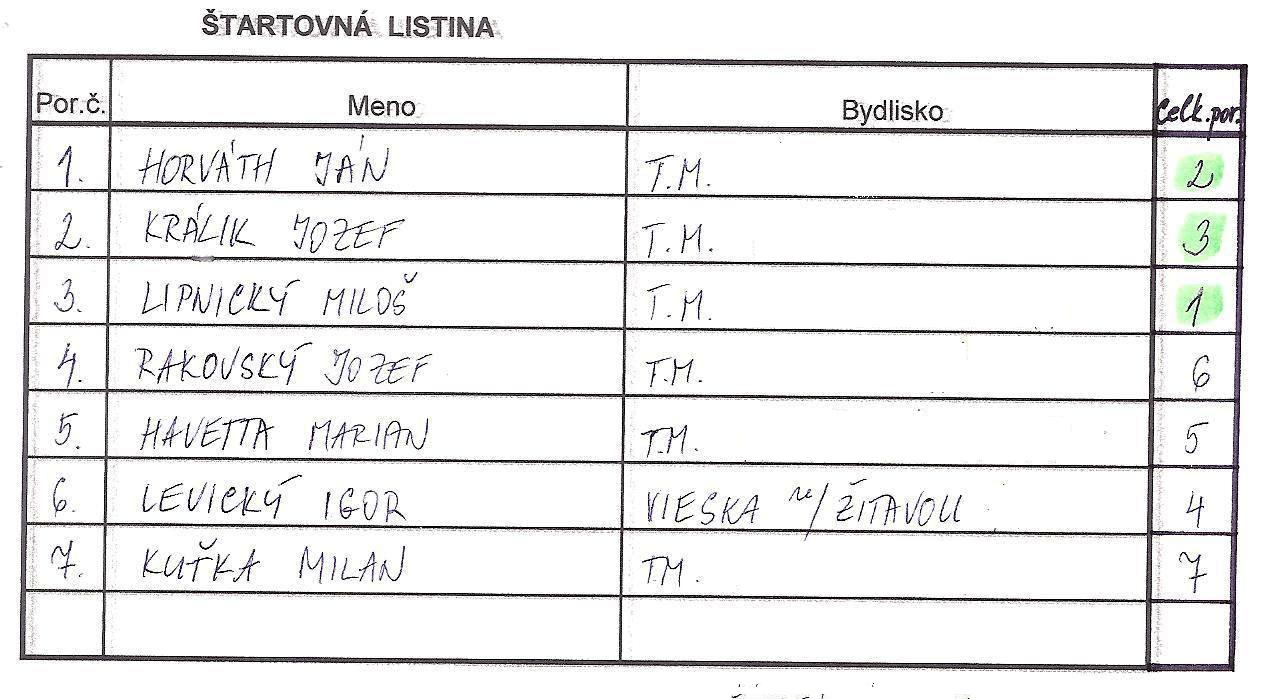 ŠTARTOVNÁ LISTINA
Por.č. Meno Bydlisko Celk.por.
1. HORVÁTH JÁN T.M. 2
2. KRÁLIK JOZEF T.M. 3
3. LIPNICKÝ MILOŠ T.M. 1
4. RAKOVSKÝ JOZEF T.M. 6
5. HAVETTA MARIAN T.M. 5
6. LEVICKÝ IGOR VIESKA n/ ŽITAVOU 4
7. KUŤKA MILAN T.M. 7